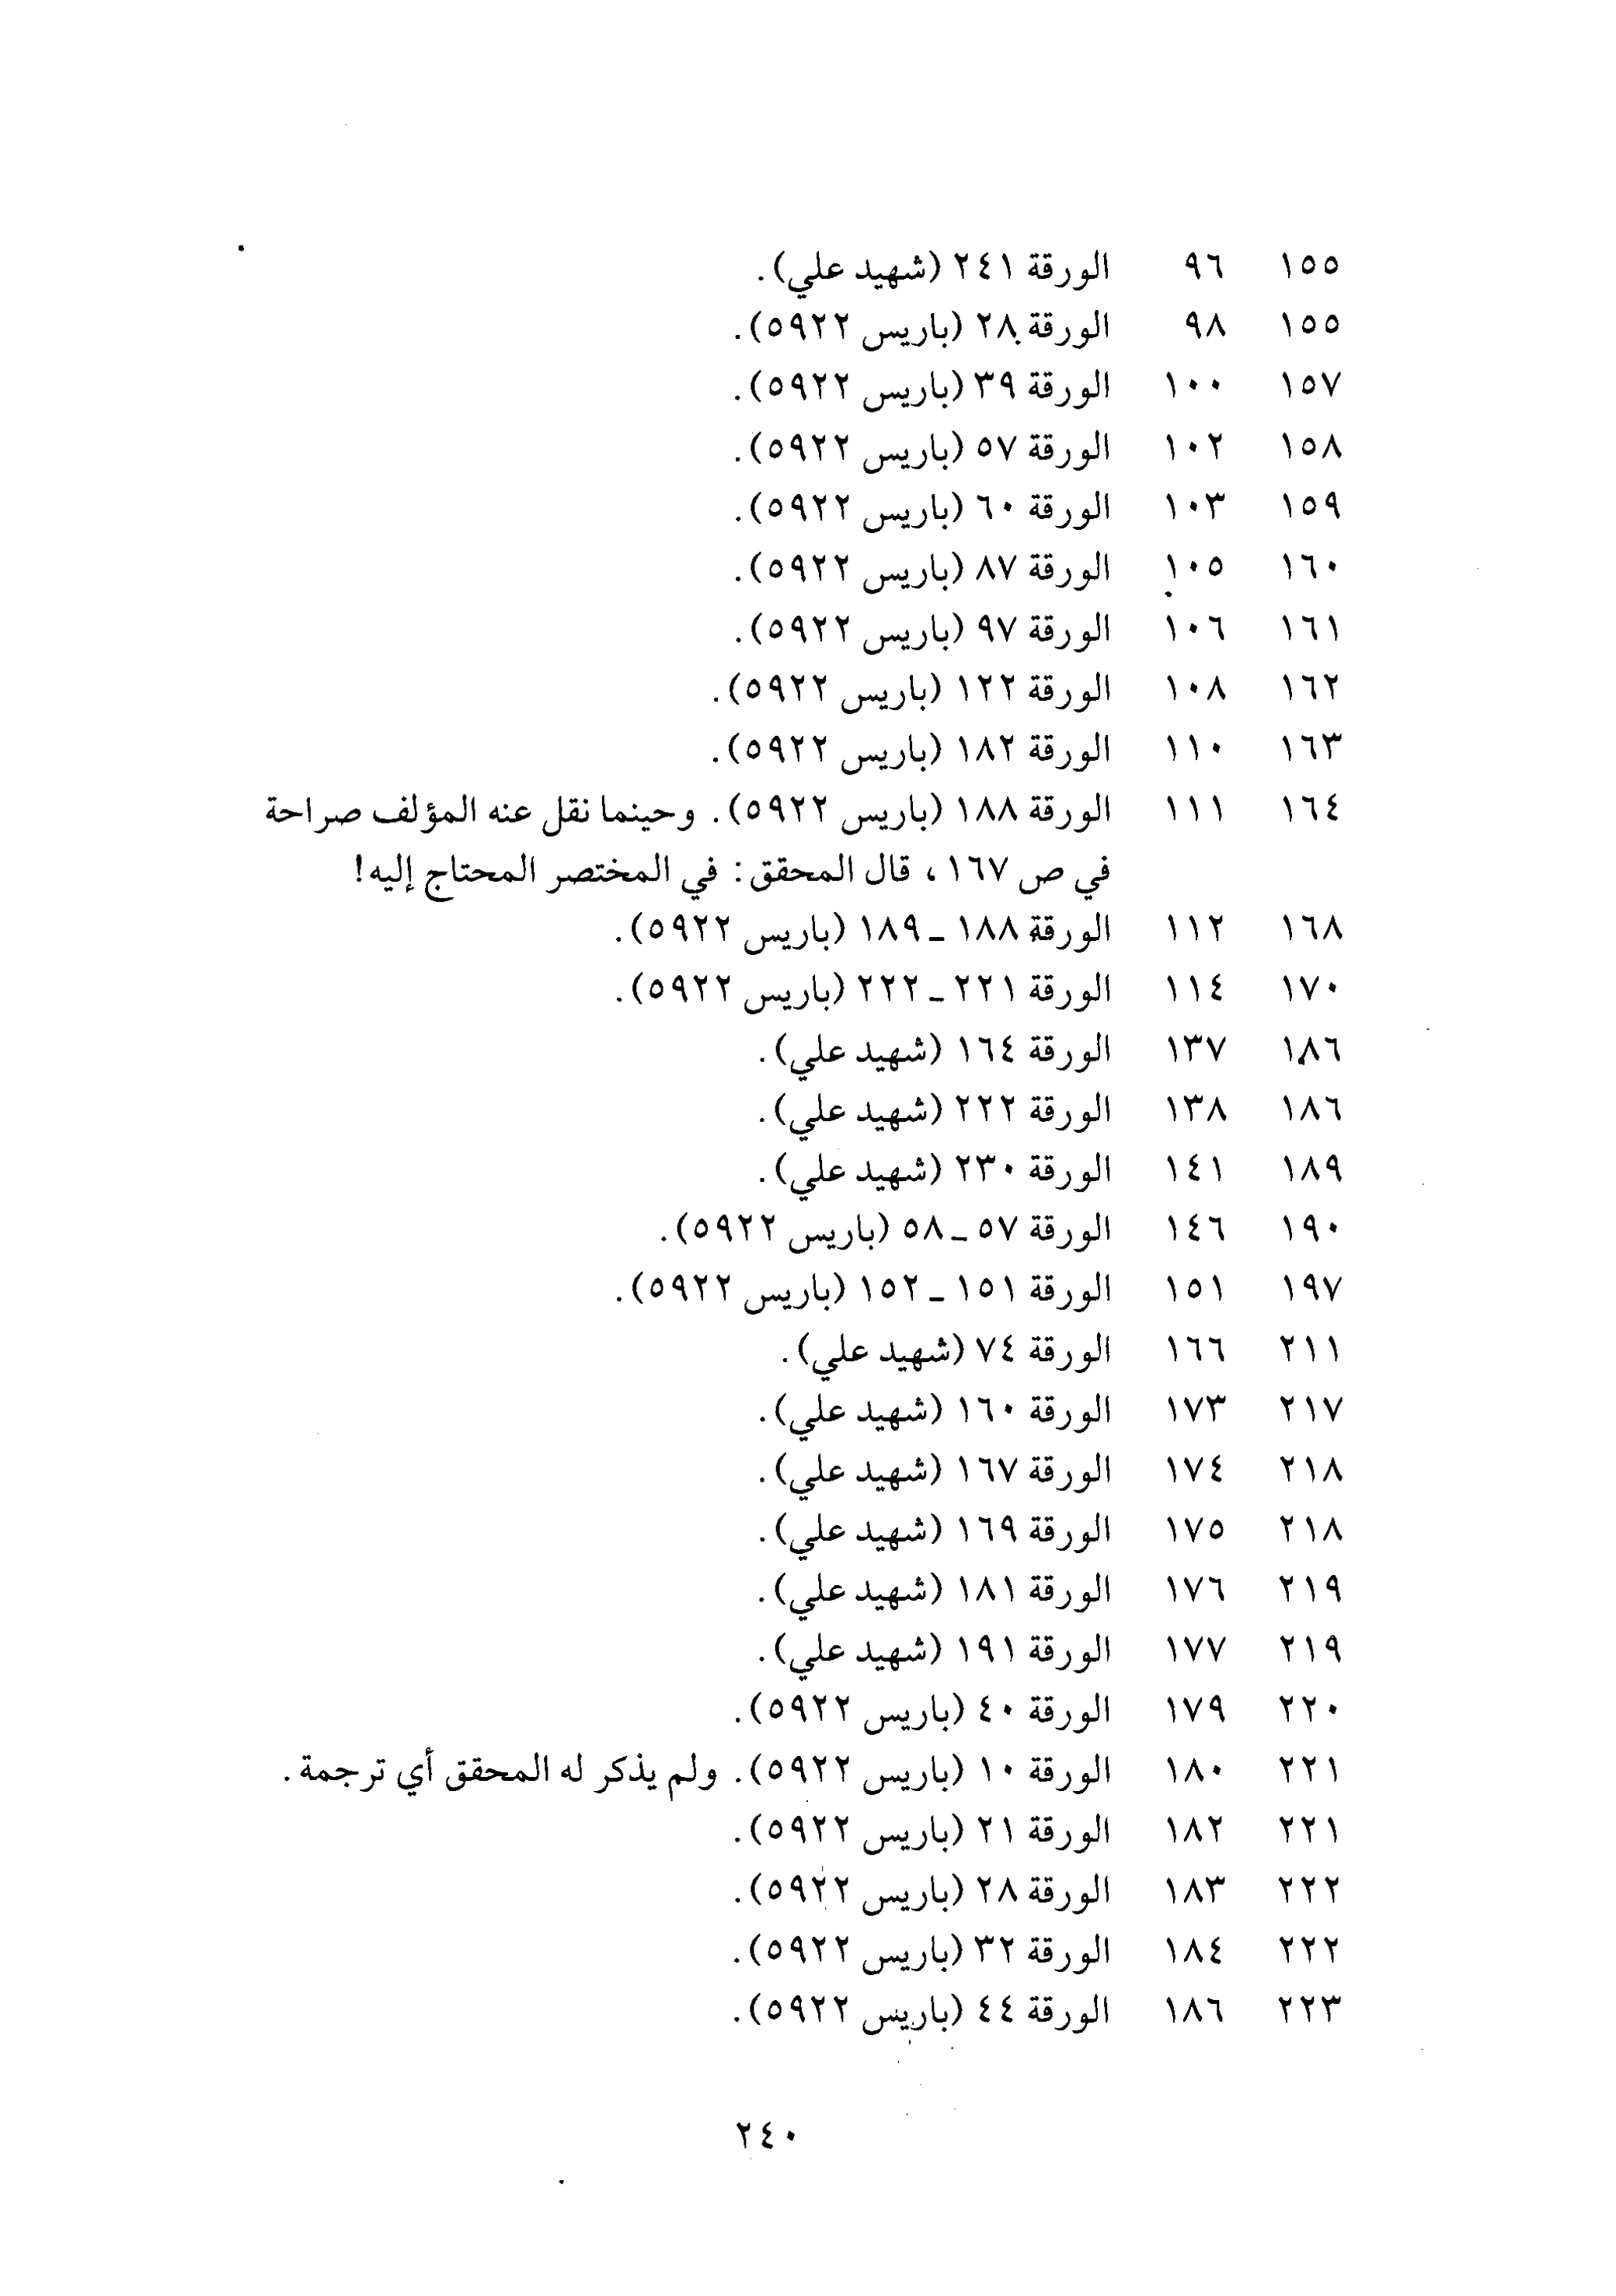 ١٥٥ ٩٦ الورقة ٢٤١ (شهيد علي).
١٥٥ ٩٨ الورقة ٢٨ (باريس ٥٩٢٢).
١٥٧ ١٠٠ الورقة ٣٩ (باريس ٥٩٢٢).
١٥٨ ١٠٢ الورقة ٥٧ (باريس ٥٩٢٢).
١٥٩ ١٠٣ الورقة ٦٠ (باريس ٥٩٢٢).
١٦٠ ١٠٥ الورقة ٨٧ (باريس ٥٩٢٢).
١٦١ ١٠٦ الورقة ٩٧ (باريس ٥٩٢٢).
١٦٢ ١٠٨ الورقة ١٢٢ (باريس ٥٩٢٢).
١٦٣ ١١٠ الورقة ١٨٢ (باريس ٥٩٢٢).
١٦٤ ١١١ الورقة ١٨٨ (باريس ٥٩٢٢). وحينما نقل عنه المؤلف صراحة
في ص ١٦٧، قال المحقق: في المختصر المحتاج إليه!
١٦٨ ١١٢ الورقة ١٨٨ - ١٨٩ (باريس ٥٩٢٢).
١٧٠ ١١٤ الورقة ٢٢١ - ٢٢٢ (باريس ٥٩٢٢).
١٨٦ ١٣٧ الورقة ١٦٤ (شهيد علي).
١٨٦ ١٣٨ الورقة ٢٢٢ (شهيد علي).
١٨٩ ١٤١ الورقة ٢٣٠ (شهيد علي).
١٩٠ ١٤٦ الورقة ٥٧ - ٥٨ (باريس ٥٩٢٢).
١٩٧ ١٥١ الورقة ١٥١ - ١٥٢ (باريس ٥٩٢٢).
٢١١ ١٦٦ الورقة ٧٤ (شهيد علي).
٢١٧ ١٧٣ الورقة ١٦٠ (شهيد علي).
٢١٨ ١٧٤ الورقة ١٦٧ (شهيد علي).
٢١٨ ١٧٥ الورقة ١٦٩ (شهيد علي).
٢١٩ ١٧٦ الورقة ١٨١ (شهيد علي).
٢١٩ ١٧٧ الورقة ١٩١ (شهيد علي).
٢٢٠ ١٧٩ الورقة ٤٠ (باريس ٥٩٢٢).
٢٢١ ١٨٠ الورقة ١٠ (باريس ٥٩٢٢). ولم يذكر له المحقق أي ترجمة.
٢٢١ ١٨٢ الورقة ٢١ (باريس ٥٩٢٢).
٢٢٢ ١٨٣ الورقة ٢٨ (باريس ٥٩٢٢).
٢٢٢ ١٨٤ الورقة ٣٢ (باريس ٥٩٢٢).
٢٢٣ ١٨٦ الورقة ٤٤ (باريس ٥٩٢٢).
٢٤٠